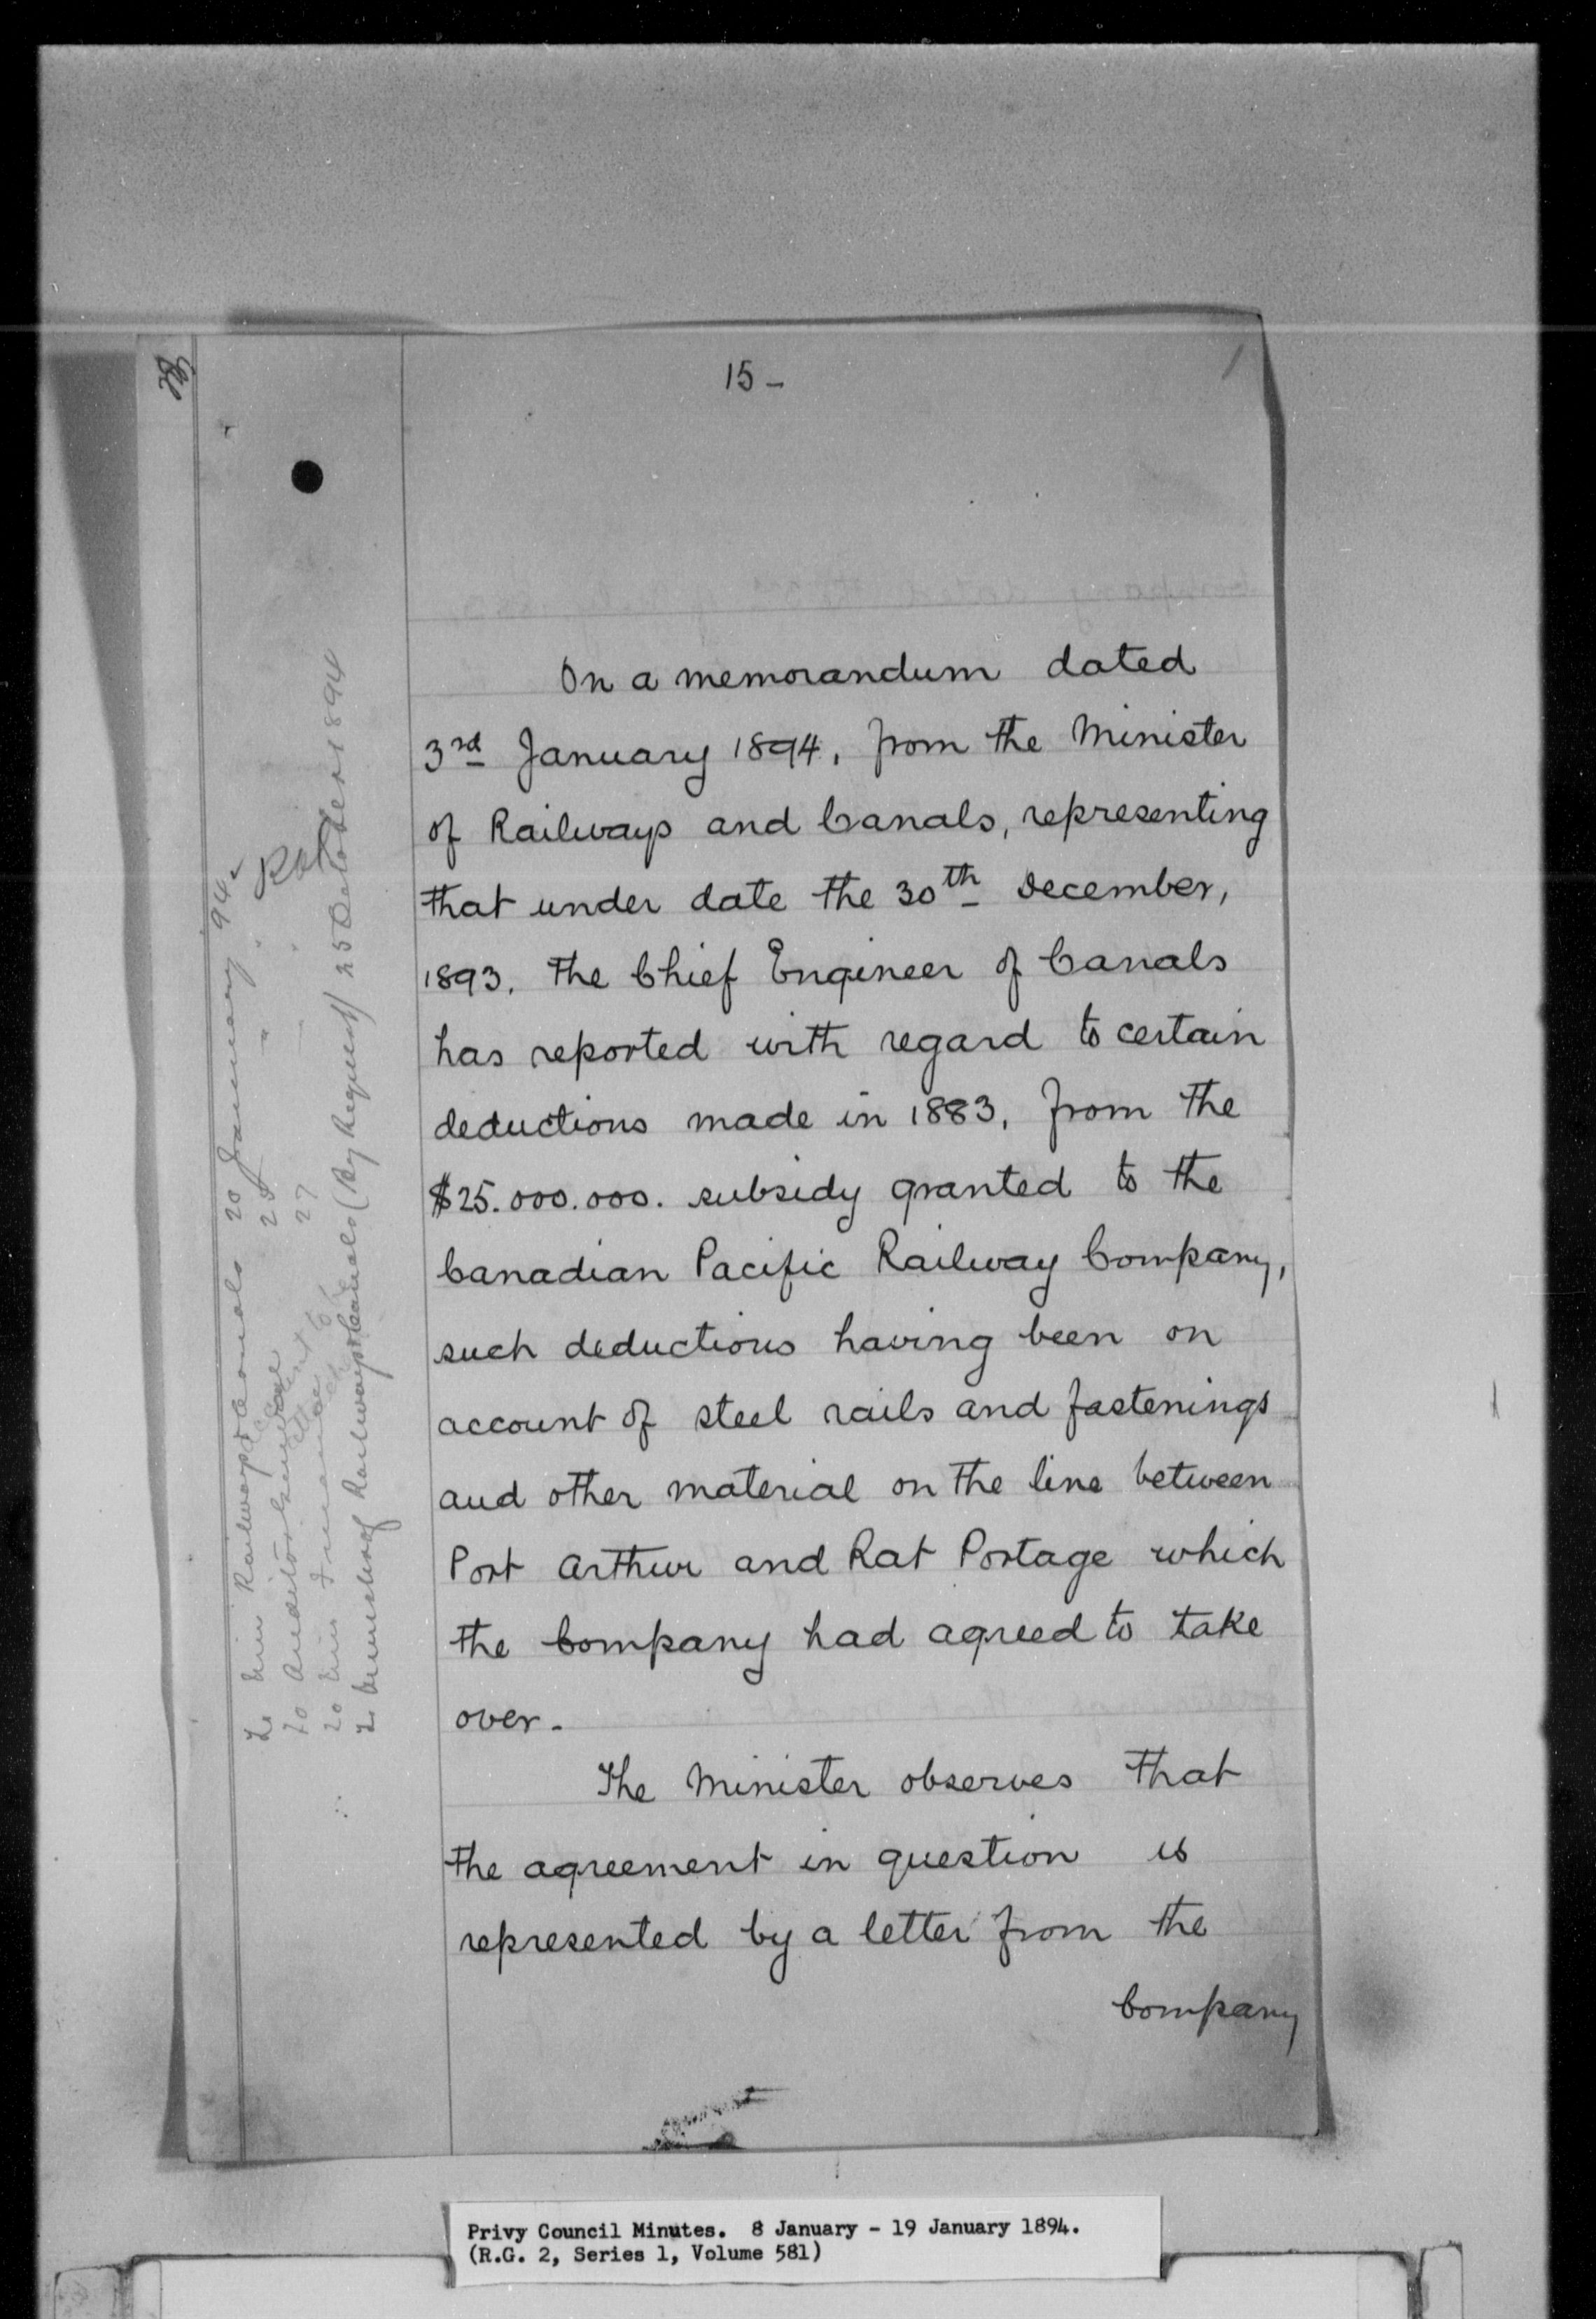 15 -
On a memorandum dated
3rd January 1894, from the Minister
of Railways and Canals, representing
that under date the 30th December,
1893, the Chief Engineer of Canals
has reported with regard to certain
deductions made in 1883, from the
$25.000.000. subsidy granted to the
Canadian Pacific Railway Company,
such deductions having been on
account of steel rails and fastenings
and other material on the line between
Port Arthur and Rat Portage which
the Company had agreed to take
over -
The Minister observes that
the agreement in question is
represented by a letter from the
Company
To Min Railways & Canals 20 January 94
To Auditor 25 " "
To Min Finance 27 " "
of Railways & Canals (By Request) 25 October 1894
Privy Council Minutes. 8 January - 19 January 1894.
(R.G. 2, Series 1, Volume 581)